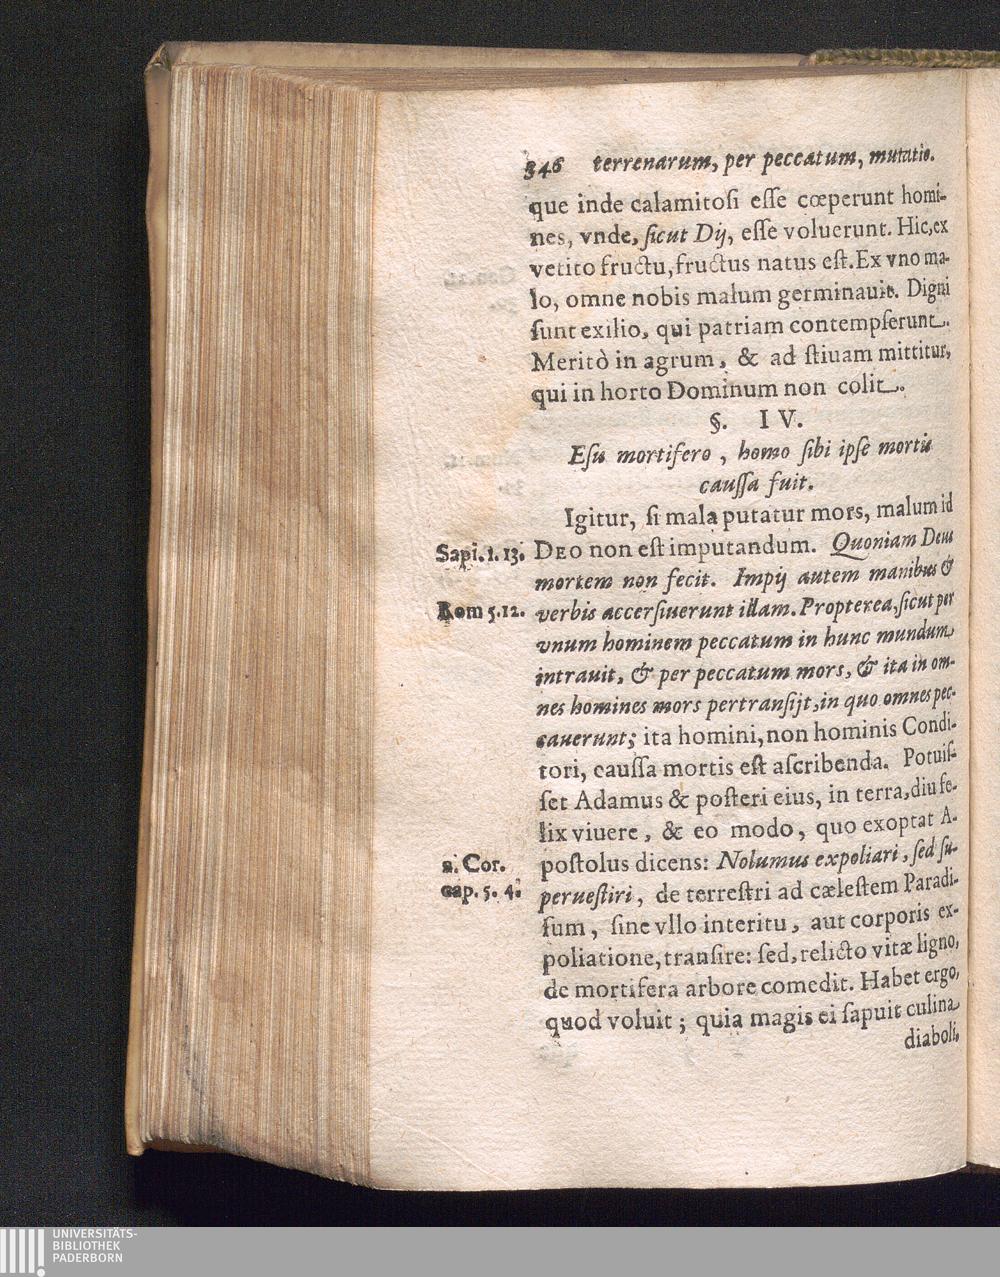 346 terrenarum, per peccatum, mutatio.
que inde calamitosi esse cœperunt homi-
nes, vnde, sicut Dij, esse voluerunt. Hic, ex
vetito fructu, fructus natus est. Ex vno ma-
lo, omne nobis malum germinauit. Digni
sunt exilio, qui patriam contempserunt.
Meritò in agrum, & ad stiuam mittitur,
qui in horto Dominum non colit.
§. IV.
Esu mortifero, homo sibi ipse mortis
caussa fuit.
Igitur, si mala putatur mors, malum id
Sapi. 1. 13. DEO non est imputandum. Quoniam Deus
mortem non fecit. Impij autem manibus &
Rom 5. 12. verbis accersiuerunt illam. Propterea, sicut per
vnum hominem peccatum in hunc mundum
intrauit, & per peccatum mors, & ita in om-
nes homines mors pertransijt, in quo omnes pec-
cauerunt; ita homini, non hominis Condi-
tori, caussa mortis est ascribenda. Potuis-
set Adamus & posteri eius, in terra, diu fe-
lix viuere, & eo modo, quo exoptat A-
2. Cor. postolus dicens: Nolumus expoliari, sed su-
cap. 5. 4. peruestiri, de terrestri ad cælestem Paradi-
sum, sine vllo interitu, aut corporis ex-
poliatione, transire: sed, relicto vitæ ligno,
de mortifera arbore comedit. Habet ergo,
quod voluit; quia magis ei sapuit culina
diaboli,
UNIVERSITÄTS-
BIBLIOTHEK
PADERBORN